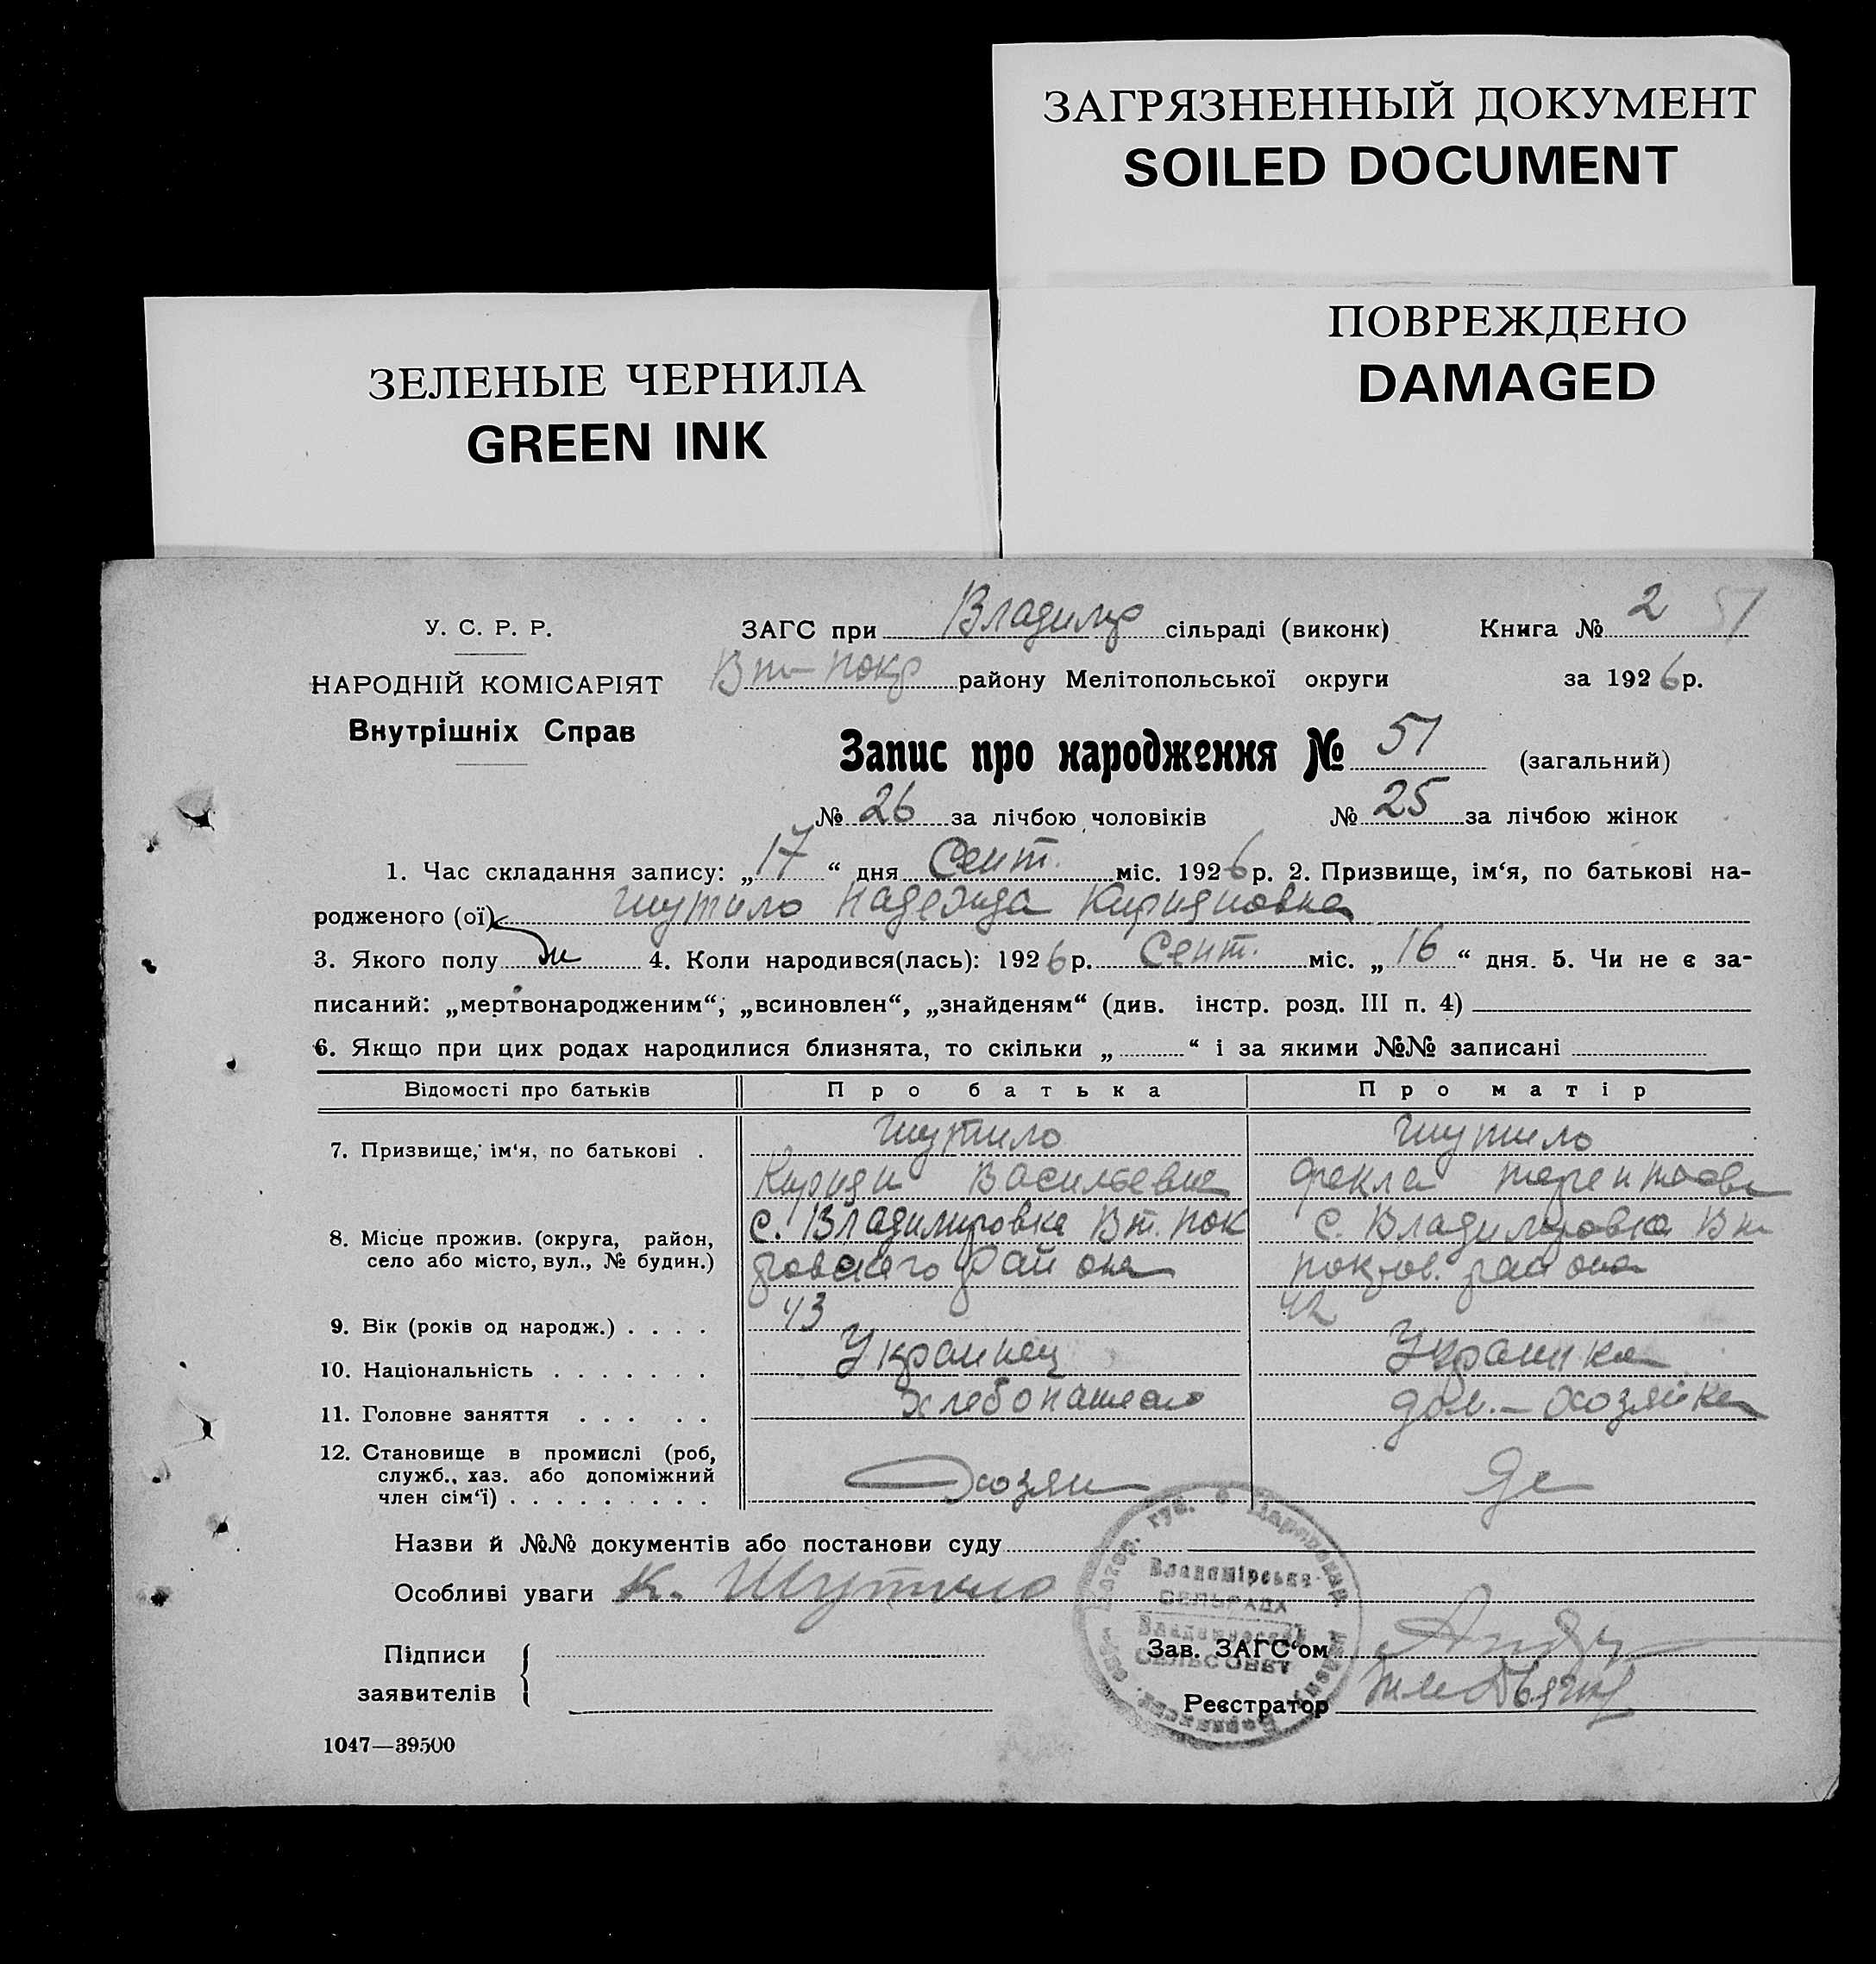 ЗАГРЯЗНЕННЫЙ ДОКУМЕНТ
SOILED DOCUMENT
ЗЕЛЕНЫЕ ЧЕРНИЛА
GREEN INK
ПОВРЕЖДЕНО
DAMAGED
У. С. Р. Р.
НАРОДНІЙ КОМІСАРІЯТ
Внутрішніх Справ
ЗАГС при Владимр сільраді (виконк) Книга № 2 51
Вт-покр району Мелітопольської округи за 1926 р.
Запис про народження № 51 (загальний)
№ 26 за лічбою чоловіків № 25 за лічбою жінок
1. Час складання запису: „17“ дня Сент. міс. 1926 р. 2. Призвище, ім‘я, по батькові на-
родженого (ої) Шутило Надежда Кирияновна
3. Якого полу ж 4. Коли народився(лась): 1926 р. Сент. міс. „16“ дня. 5. Чи не є за-
писаний: „мертвонародженим“; „всиновлен“, „знайденям“ (див. інстр. розд. III п. 4)
6. Якщо при цих родах народилися близнята, то скільки „ “ і за якими №№ записані
Відомості про батьків Про батька Про матір
7. Призвище, ім‘я, по батькові . Шутило Шутило
Кириян Васильевич Фекла Терентьевн
8. Місце прожив. (округа, район, село або місто, вул., № будин.) с. Владимировка Вт. пок с. Владимировка Вт
ровского района покров. района
9. Вік (років од народж.) . . . . 43 42
10. Національність . . . . . . . Украинец Украинка
11. Головне заняття . . . . . хлебопашество дом.-хозяйка
12. Становище в промислі (роб,
служб., хаз. або допоміжний
член сім‘ї) . . . . . . . . . Хозяин
Назви й №№ документів або постанови суду
Особливі уваги К. Шутило
Владимірська
СЕЛЬРАДА
Владимировский
СЕЛЬСОВЕТ
Підписи
заявителів
Зав. ЗАГС‘ом
Реєстратор
1047—39500